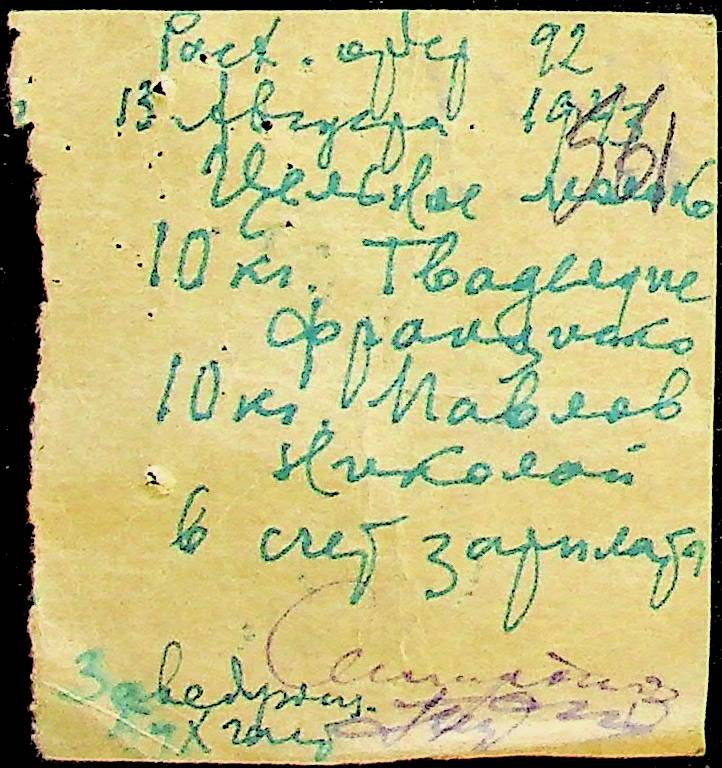 Расх. ордер 92
13 Августа 1947
561
Цельное молоко
10 кг.
Франциско
10 кг. Павлов
Николай
в счет зарплаты
Заведующ.